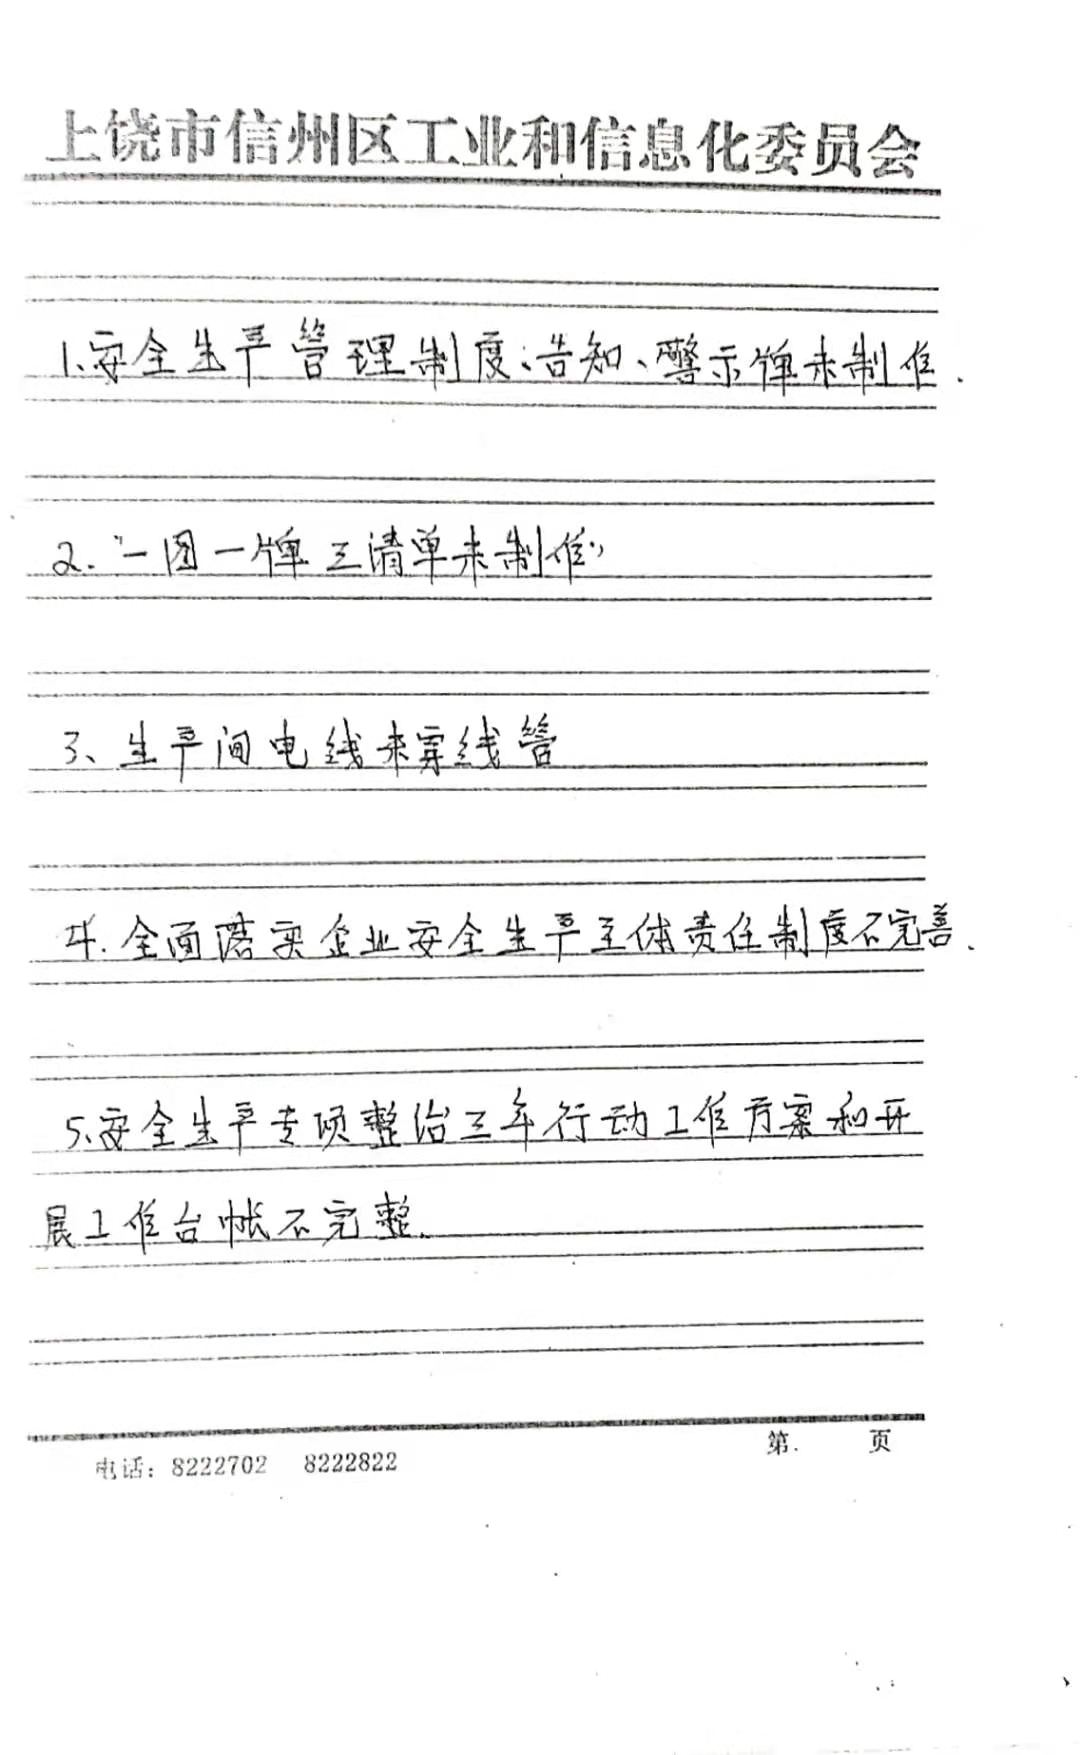 上饶市信州区工业和信息化委员会
1.安全生产管理制度;告知、警示牌未制作.
2.“一图一牌三清单未制作”
3、生产间电线未穿线管
4.全面落实企业安全生产主体责任制度不完善.
5.安全生产专项整治三年行动工作方案和开
展工作台帐不完整.
第. 页
电话：8222702 8222822